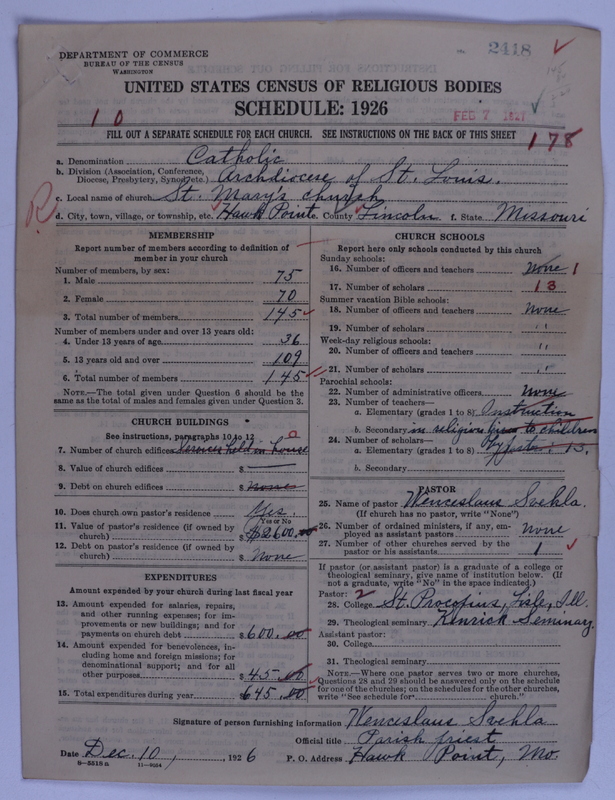 2418
DEPARTMENT OF COMMERCE
BUREAU OF THE CENSUS
WASHINGTON
UNITED STATES CENSUS OF RELIGIOUS BODIES
SCHEDULE: 1926
10
FEB 7 1927
FILL OUT A SEPARATE SCHEDULE FOR EACH CHURCH. SEE INSTRUCTIONS ON THE BACK OF THIS SHEET
178
a. Denomination Catholic
b. Division (Association, Conference, Diocese, Presbytery, Synod, etc.) Archdiocese of St. Louis.
c. Local name of church St. Mary's church
R
d. City, town, village, or township, etc. Hawk Point e. County Lincoln f. State Missouri
MEMBERSHIP
Report number of members according to definition of
member in your church
Number of members, by sex:
1. Male 75
2. Female 70
3. Total number of members 145
Number of members under and over 13 years old:
4. Under 13 years of age 36
5. 13 years old and over 109
6. Total number of members 145
NOTE.—The total given under Question 6 should be
same as the total of males and females given under Question 3.
CHURCH BUILDINGS
See instructions, paragraphs 10 to 12
0
7. Number of church edifices Services held in house
8. Value of church edifices $ —
9. Debt on church edifices $ None
10. Does church own pastor's residence Yes.
Yes or No
11. Value of pastor's residence (if owned by
church) $ $2600.00
12. Debt on pastor's residence (if owned by
church) $ None
EXPENDITURES
Amount expended by your church during last fiscal year
13. Amount expended for salaries, repairs,
and other running expenses; for im-
provements or new buildings; and for
payments on church debt $ 600.00
14. Amount expended for benevolences, in-
cluding home and foreign missions; for
denominational support; and for all
other purposes $ 45.00
15. Total expenditures during year $ 645.00
CHURCH SCHOOLS
Report here only schools conducted by this church
Sunday schools:
16. Number of officers and teachers None 1
17. Number of scholars 13
Summer vacation Bible schools:
18. Number of officers and teachers None
19. Number of scholars "
Week-day religious schools:
20. Number of officers and teachers "
21. Number of scholars "
Parochial schools:
22. Number of administrative officers None
23. Number of teachers—
a. Elementary (grades 1 to 8) Instruction
b. Secondary in religion given to children
24. Number of scholars—
a. Elementary (grades 1 to 8) by pastor. 13.
b. Secondary
PASTOR
25. Name of pastor Wenceslaus Svehla.
(If church has no pastor, write "None")
26. Number of ordained ministers, if any, em-
ployed as assistant pastors None
27. Number of other churches served by the
pastor or his assistants 1
If pastor (or assistant pastor) is a graduate of a college or
theological seminary, give name of institution below. (If
not a graduate, write "No" in the space indicated.)
Pastor: 2
28. College St. Procopius, Lisle, Ill.
29. Theological seminary Kenrick Seminary.
Assistant pastor:
30. College
31. Theological seminary
NOTE.—Where one pastor serves two or more churches,
Questions 28 and 29 should be answered only on the schedule
for one of the churches; on the schedules for the other churches,
write "See schedule for church."
Signature of person furnishing information Wenceslaus Svehla
Official title Parish priest
Date Dec. 10, 1926 P. O. Address Hawk Point, Mo.
8—5518a 11—9034